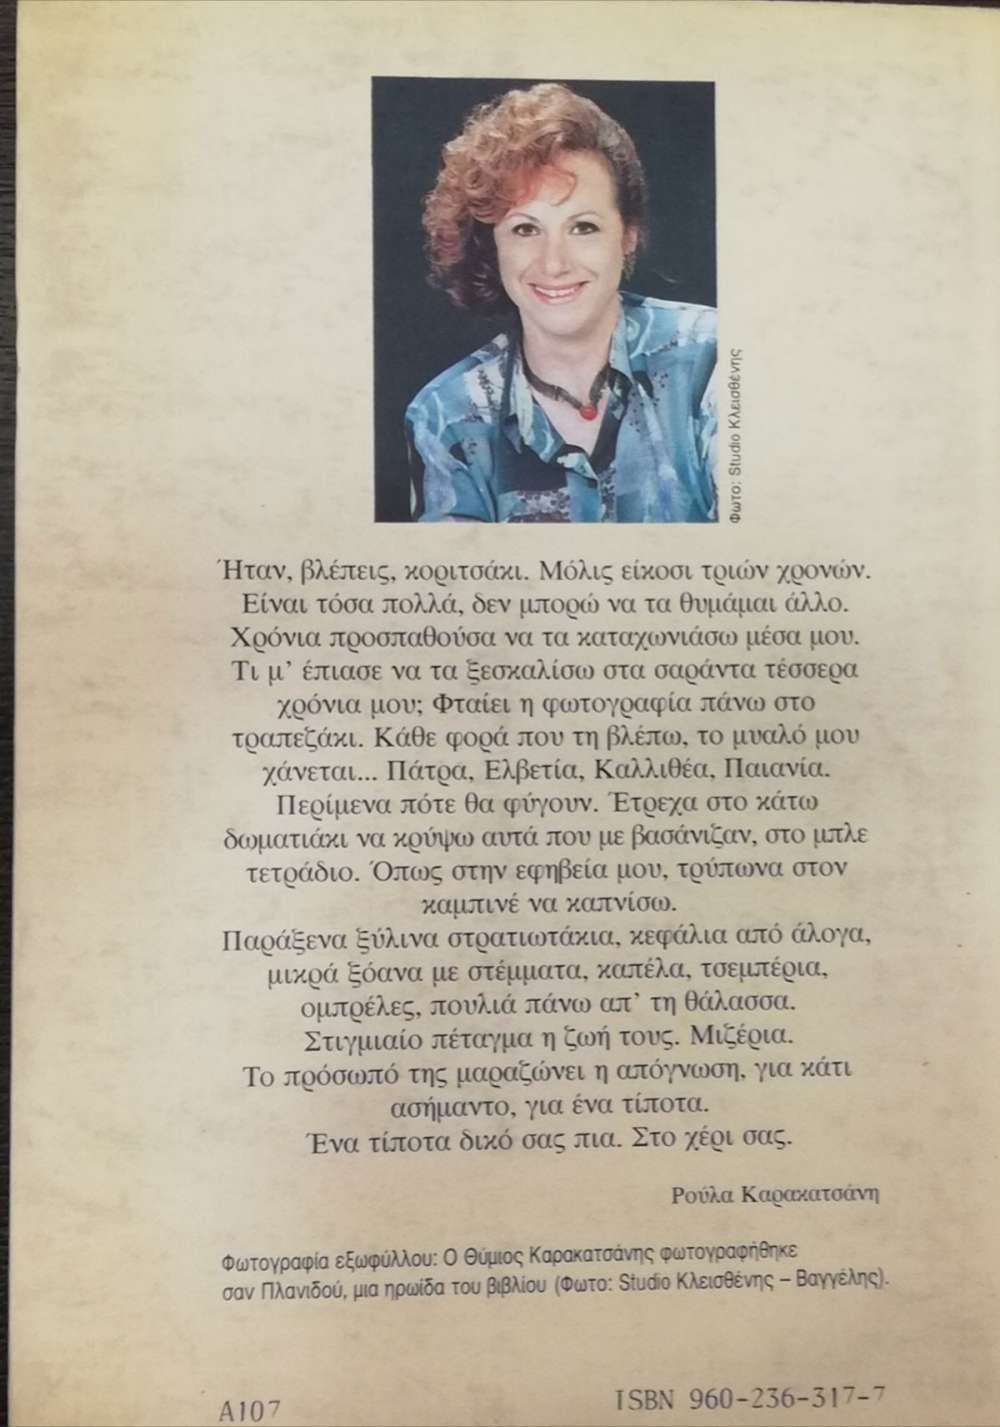 Φωτο: Studio Κλεισθένης
Ήταν, βλέπεις, κοριτσάκι. Μόλις είκοσι τριών χρονών.
Είναι τόσα πολλά, δεν μπορώ να τα θυμάμαι άλλο.
Χρόνια προσπαθούσα να τα καταχωνιάσω μέσα μου.
Τι μ’ έπιασε να τα ξεσκαλίσω στα σαράντα τέσσερα
χρόνια μου; Φταίει η φωτογραφία πάνω στο
τραπεζάκι. Κάθε φορά που τη βλέπω, το μυαλό μου
χάνεται... Πάτρα, Ελβετία, Καλλιθέα, Παιανία.
Περίμενα πότε θα φύγουν. Έτρεχα στο κάτω
δωματιάκι να κρύψω αυτά που με βασάνιζαν, στο μπλε
τετράδιο. Όπως στην εφηβεία μου, τρύπωνα στον
καμπινέ να καπνίσω.
Παράξενα ξύλινα στρατιωτάκια, κεφάλια από άλογα,
μικρά ξόανα με στέμματα, καπέλα, τσεμπέρια,
ομπρέλες, πουλιά πάνω απ’ τη θάλασσα.
Στιγμιαίο πέταγμα η ζωή τους. Μιζέρια.
Το πρόσωπό της μαραζώνει η απόγνωση, για κάτι
ασήμαντο, για ένα τίποτα.
Ένα τίποτα δικό σας πια. Στο χέρι σας.
Ρούλα Καρακατσάνη
Φωτογραφία εξωφύλλου: Ο Θύμιος Καρακατσάνης φωτογραφήθηκε
σαν Πλανιδού, μια ηρωίδα του βιβλίου (Φωτο: Studio Κλεισθένης – Βαγγέλης).
A107
ISBN 960-236-317-7